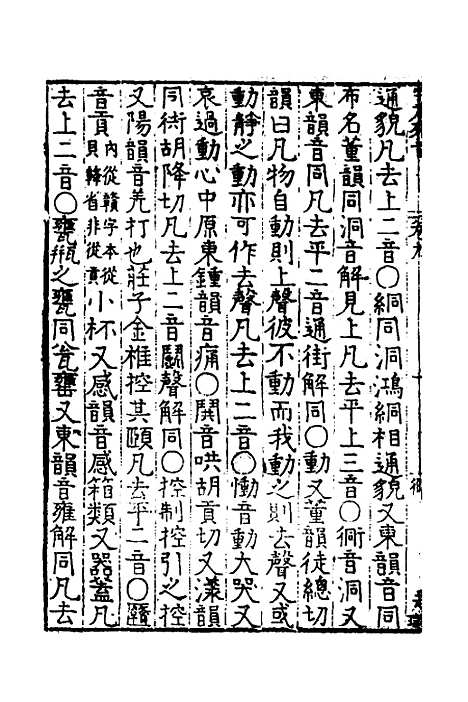 通貌凡去上二音○絧同洞鴻絧相通貌又東韻音同
布名董韻同洞音解見上凡去平上三音○衕音洞又
東韻音同凡去平二音通街解同○動又董韻徒總切
韻曰凡物自動則上聲彼不動而我動之則去聲又或
動靜之動亦可作去聲凡去上二音○慟音動大哭又
哀過動心中原東鍾韻音痛○鬨音哄胡貢切又漾韻
同術胡降切凡去上二音鬬聲解同○控制控引之控
又陽韻音羌打也莊子金椎控其頤凡去平二音○
音貢內從贛字本從貝韓省非從貢小杯又感韻音感箱類又器蓋凡
去上二音○甕瓶之甕同瓮罋又東韻音雍解同凡去